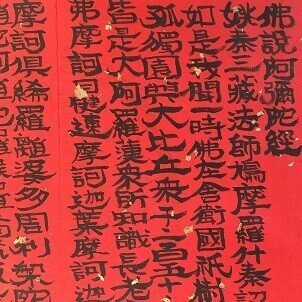 佛説阿彌陀經
姚秦三藏法師鳩摩羅什奉詔
如是我聞一時佛在舍衛國祇樹
孤獨園與大比丘衆千二百五十
皆是大阿羅漢衆所知識長老
弗摩訶目犍連摩訶迦葉摩訶迦
摩訶俱絺羅離婆多周利槃陀